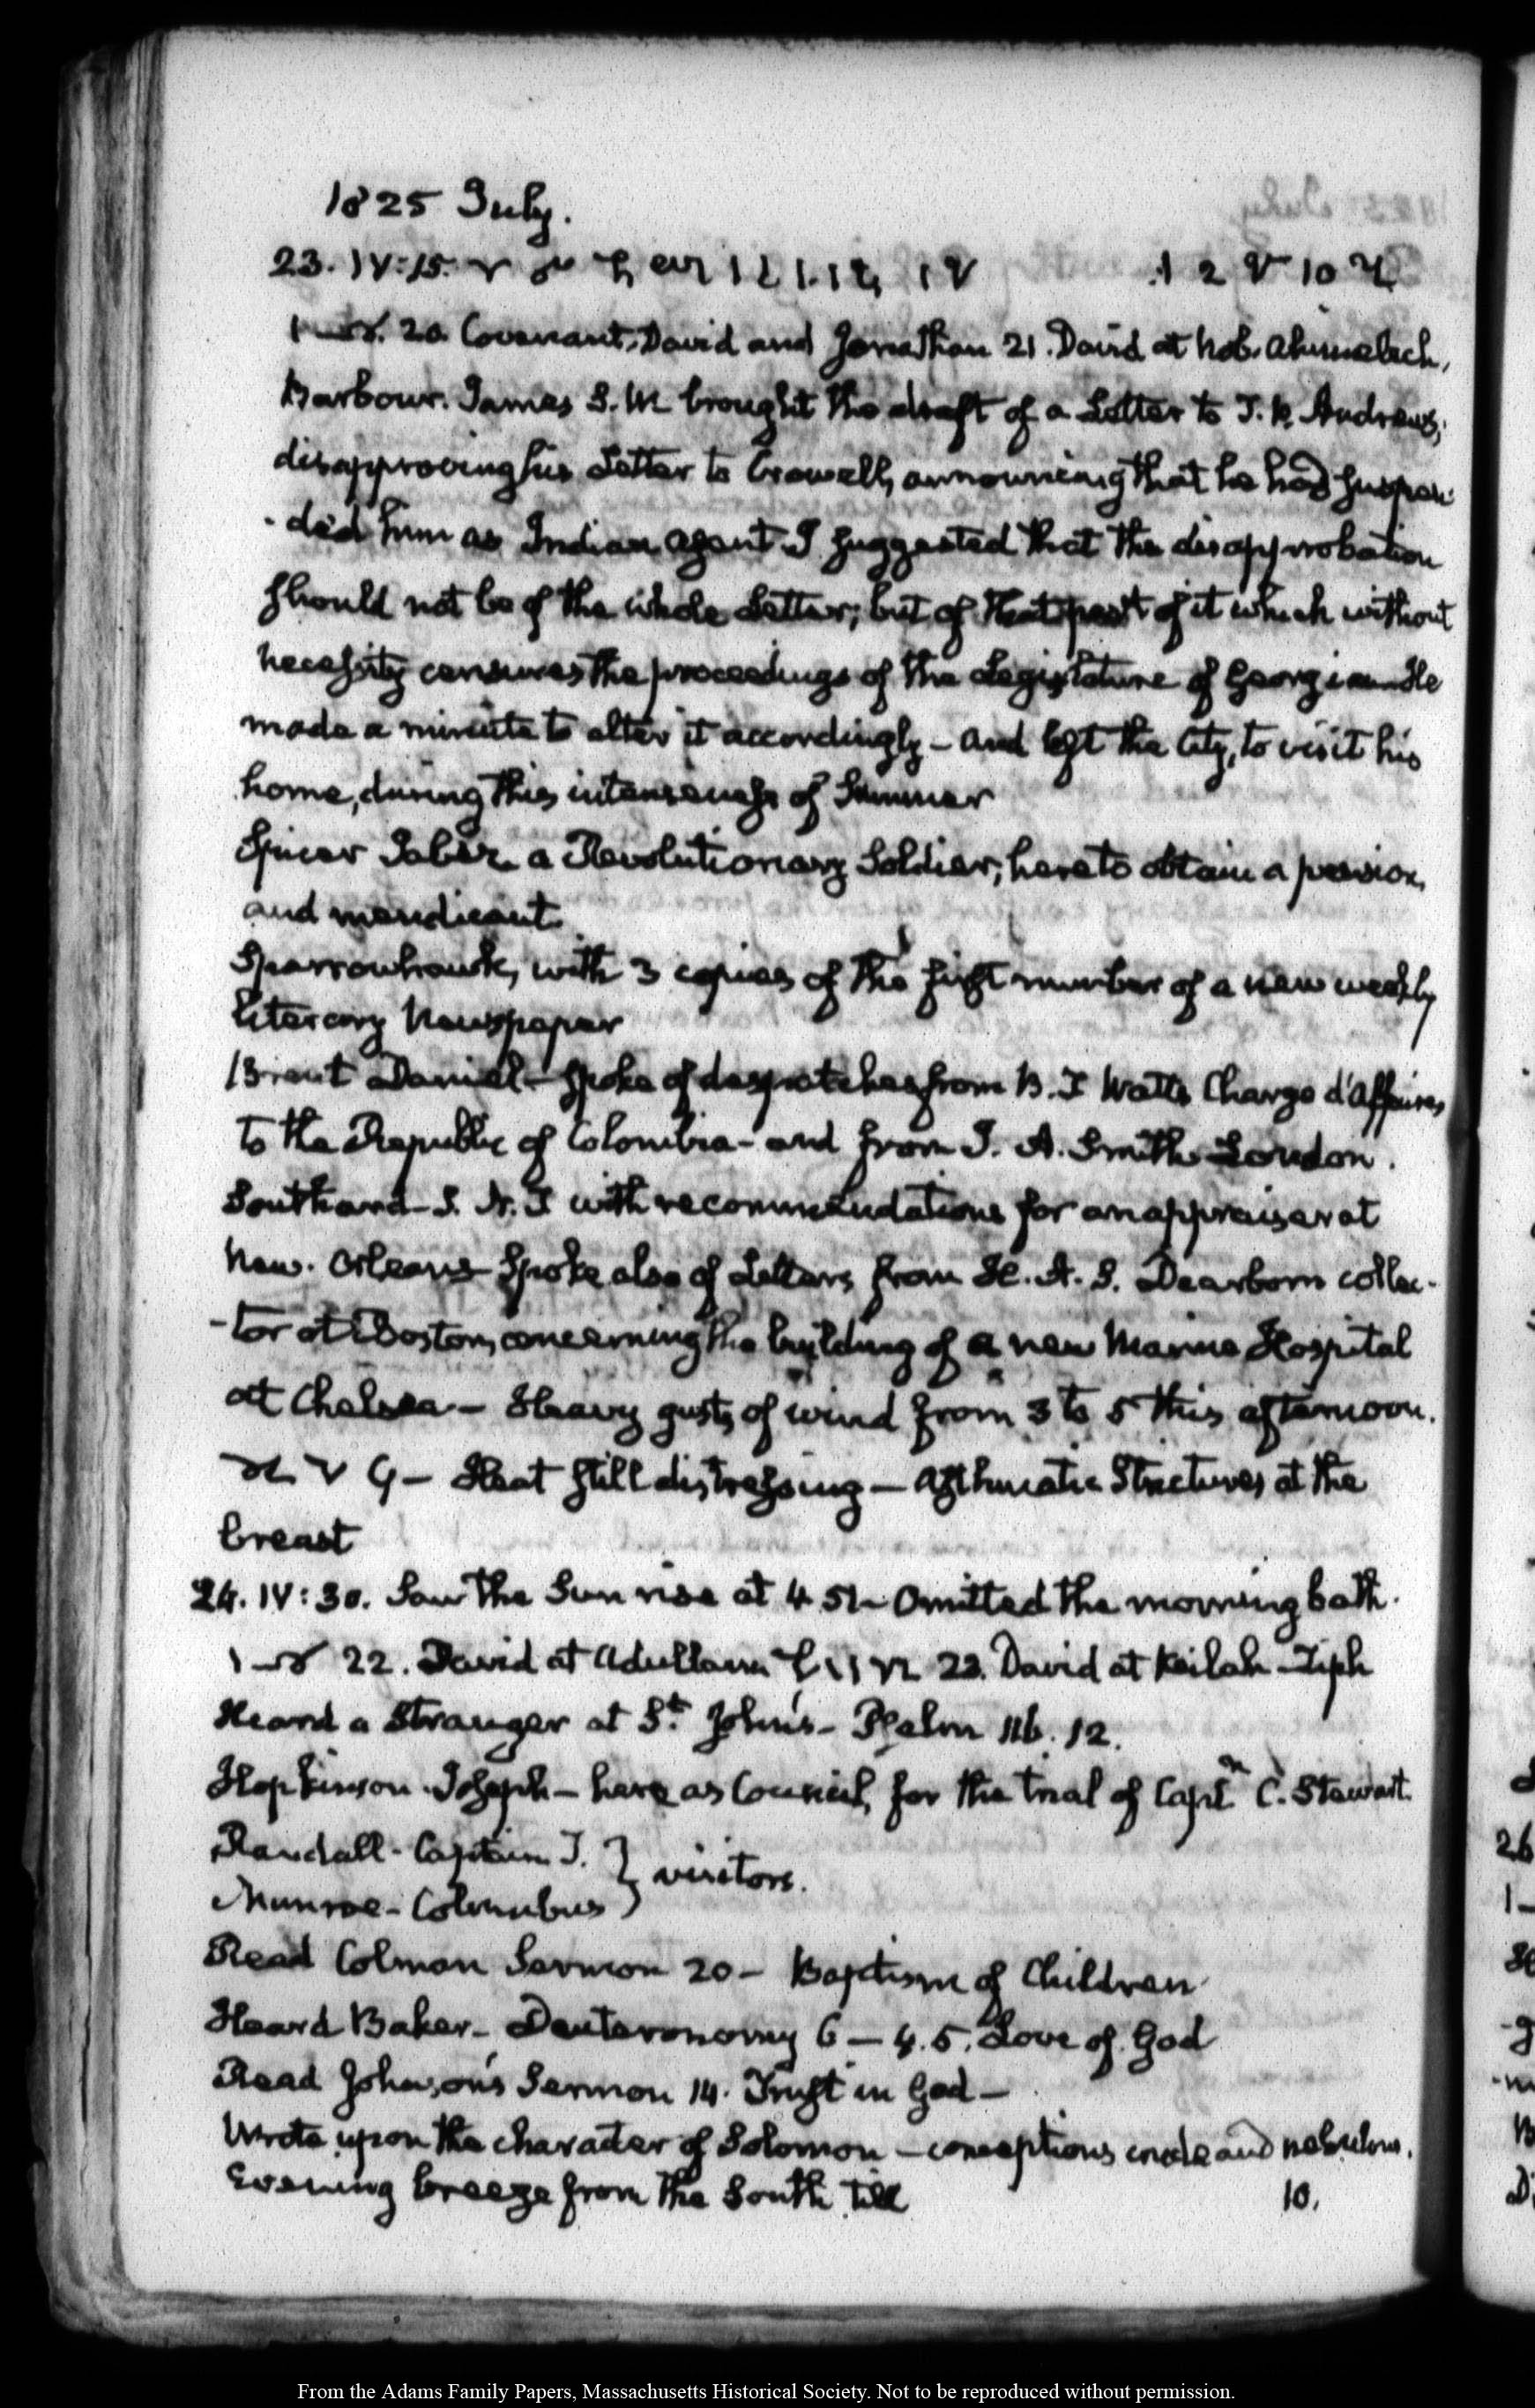 1825 July.
23. IV:15.
20. Covenant, David and Jonathan 21. David at Nob. Ahimelech,
Barbour. James S. W brought the draft of a Letter to T. P. Andrews,
disapproving his Letter to Crowell, announcing that he had suspen-
-ded him as Indian Agent. I suggested that the disapprobation
should not be of the whole Letter; but of that part of it which without
necessity censures the proceedings of the Legislature of Georgia — He
made a minute to alter it accordingly — and left the City, to visit his
home, during this intenseness of Summer
Spicer a Revolutionary Soldier, here to obtain a pension,
and mendicant.
Sparrowhawk, with 3 copies of the first number of a new weekly
literary Newspaper
Brent Daniel — Spoke of despatches from B. T Watts Chargé d'Affaires
to the Republic of Colombia — and from J. A. Smith London.
Southard — S. N. T with recommendations for an appraiser at
New. Orleans — Spoke also of Letters from H. A. S. Dearborn collec-
-tor at Boston, concerning the building of a new Marine Hospital
at Chelsea — Heavy gusts of wind from 3 to 5 this afternoon.
— Heat still distressing — Asthmatic Strictures at the
breast
24. IV:30. Saw the Sun rise at 4. 51 — Omitted the morning bath.
22. David at Adullam 23. David at Keilah — Ziph
Heard a Stranger at St. John's — Psalm 116. 12.
Hopkinson. Joseph — here as Council, for the trial of Captn C. Stewart.
Randall — Captain J. } visitors.
Munroe — Columbus
Read Colman Sermon 20 — Baptism of Children
Heard Baker — Deuteronomy 6 — 4. 5. Love of God
Read Johnson's Sermon 14. Trust in God —
Wrote upon the character of Solomon — conceptions crude and nebulous.
Evening breeze from the South till 10.
From the Adams Family Papers, Massachusetts Historical Society. Not to be reproduced without permission.